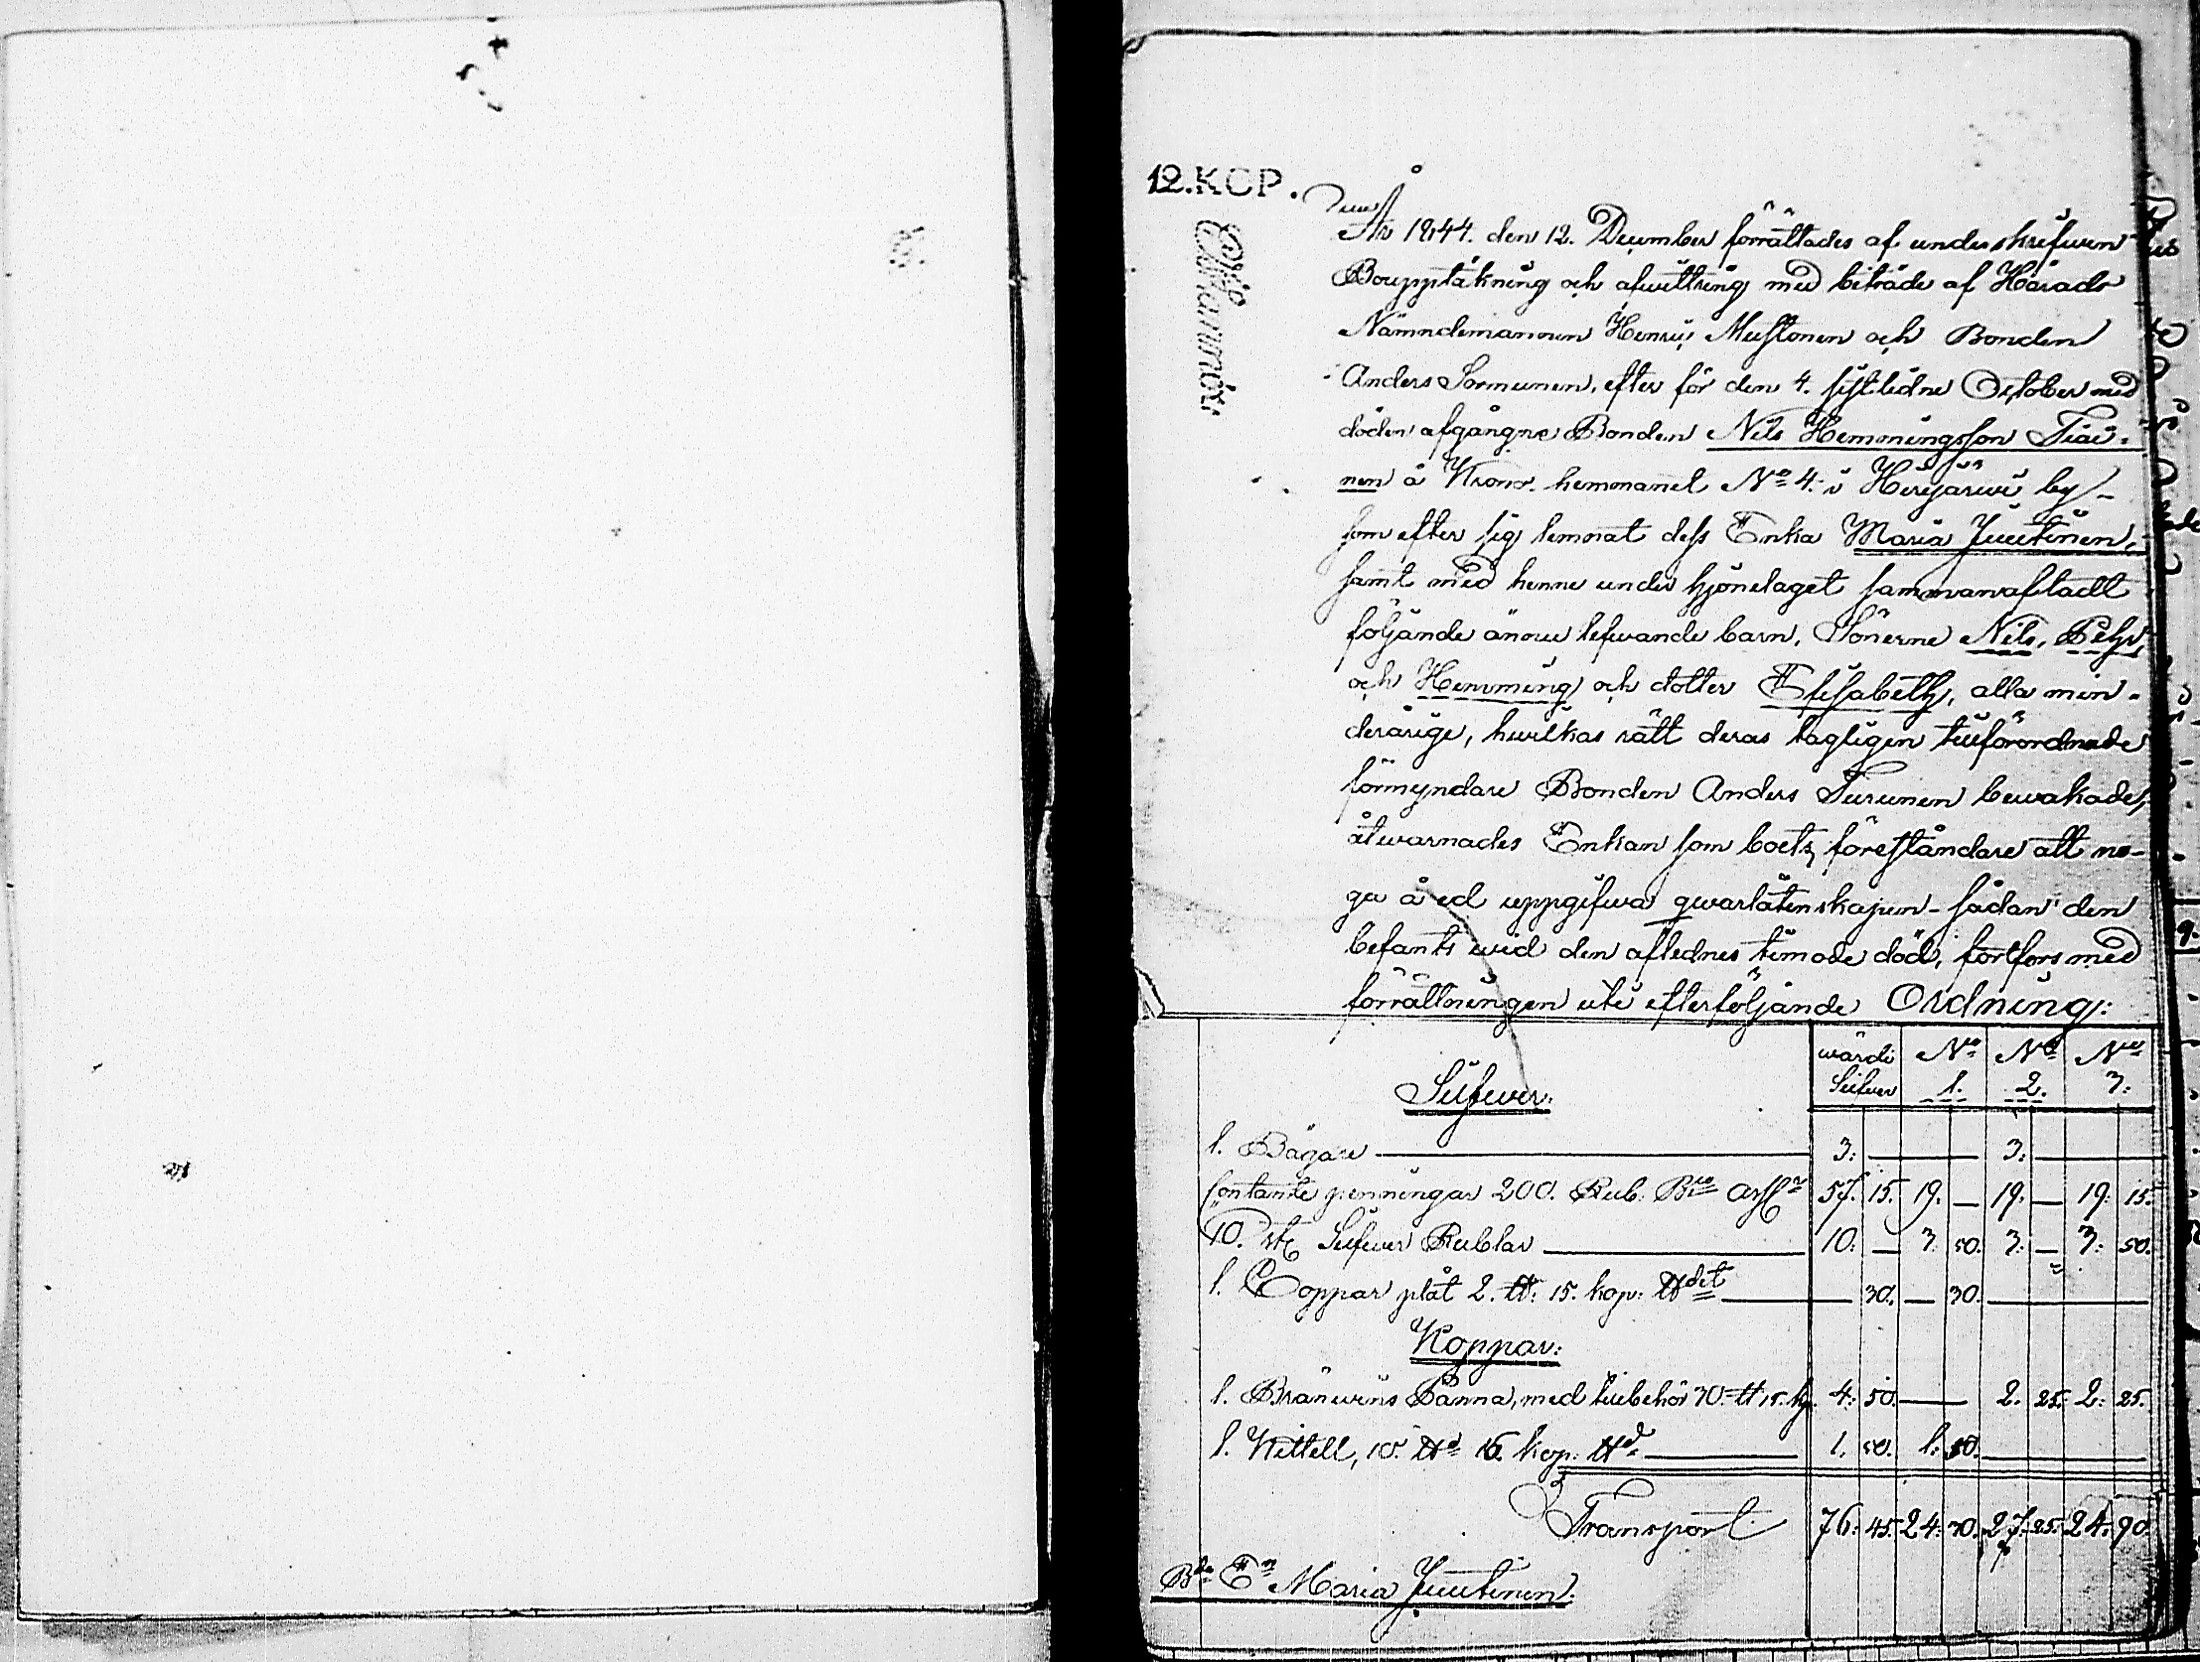 12.KOP.
År 1844. den 12. December förrättades af underskrifwen
Boupptäkning och afwittring med biträde af Härads
Nämndemannen Henric Mustonen och Bonden
Anders Sormunen, efter för den 4. sistledne October med
döden afgångne Bonden Nils Hemmingsson Tiai-
nen å Krono hemmanet No 4. i Herajärwi by-
som efter sig lemnat dess Enka Maria Juutinen,
samt med henne under hjonelaget sammanafladt
följande ännu lefwande barn, Sönerne Nils, Pehr,
och Hemming och dotter Elisabeth, alla min-
deråige, hwilkas rätt deras lagligen tillförordnade
förmyndare Bonden Anders Turunen bewakade,
åtwarnades Enkan som boets föreståndare att no-
ga å ed uppgifwa qwarlåtenskapen - sådan den
befants wid den aflednes timade död, fortfors med
förrättningen uti efterföljande Ordning:
wärde Silfwer No 1. No 2. No 3:
Silfwer:
1. Bägare 3: — 3: —
Contante penningar 200. Rub. Bco Ass 57. 15. 19. — 19. — 19: 15.
10. st Silfwer Rublar 10: — 3. 50. 3: — 3: 50.
1. Coppar plåt 2. ℔: 15. kop: ℔det 30. — 30.
Koppar:
1. Bränwins Panna, med tillbehör 30 ℔ 15. kp. 4: 50. — 2. 25. 2: 25.
1. Kittell, 10. ℔d 15. kop: ℔d 1. 50. 1: 50.
Transport 76: 45. 24: 30. 27. 25. 24. 90.
Bde En Maria Juutinen.